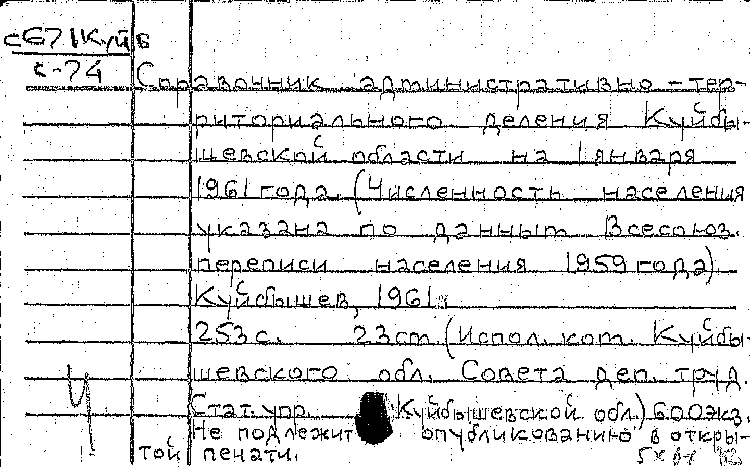 с671Куйб
с-74
Справочник административно-тер-
риториального деления Куйбы-
шевской области на 1 января
1961 года. (Численность населения
указана по данным Всесоюз.
переписи населения 1959 года)
Куйбышев, 1961.
253 с. 23 см (Испол. ком. Куйбы-
шевского обл. Совета деп. труд.
Стат. упр. Куйбышевской обл.) 600 экз.
Не подлежит опубликованию в откры-
той печати.
Ч